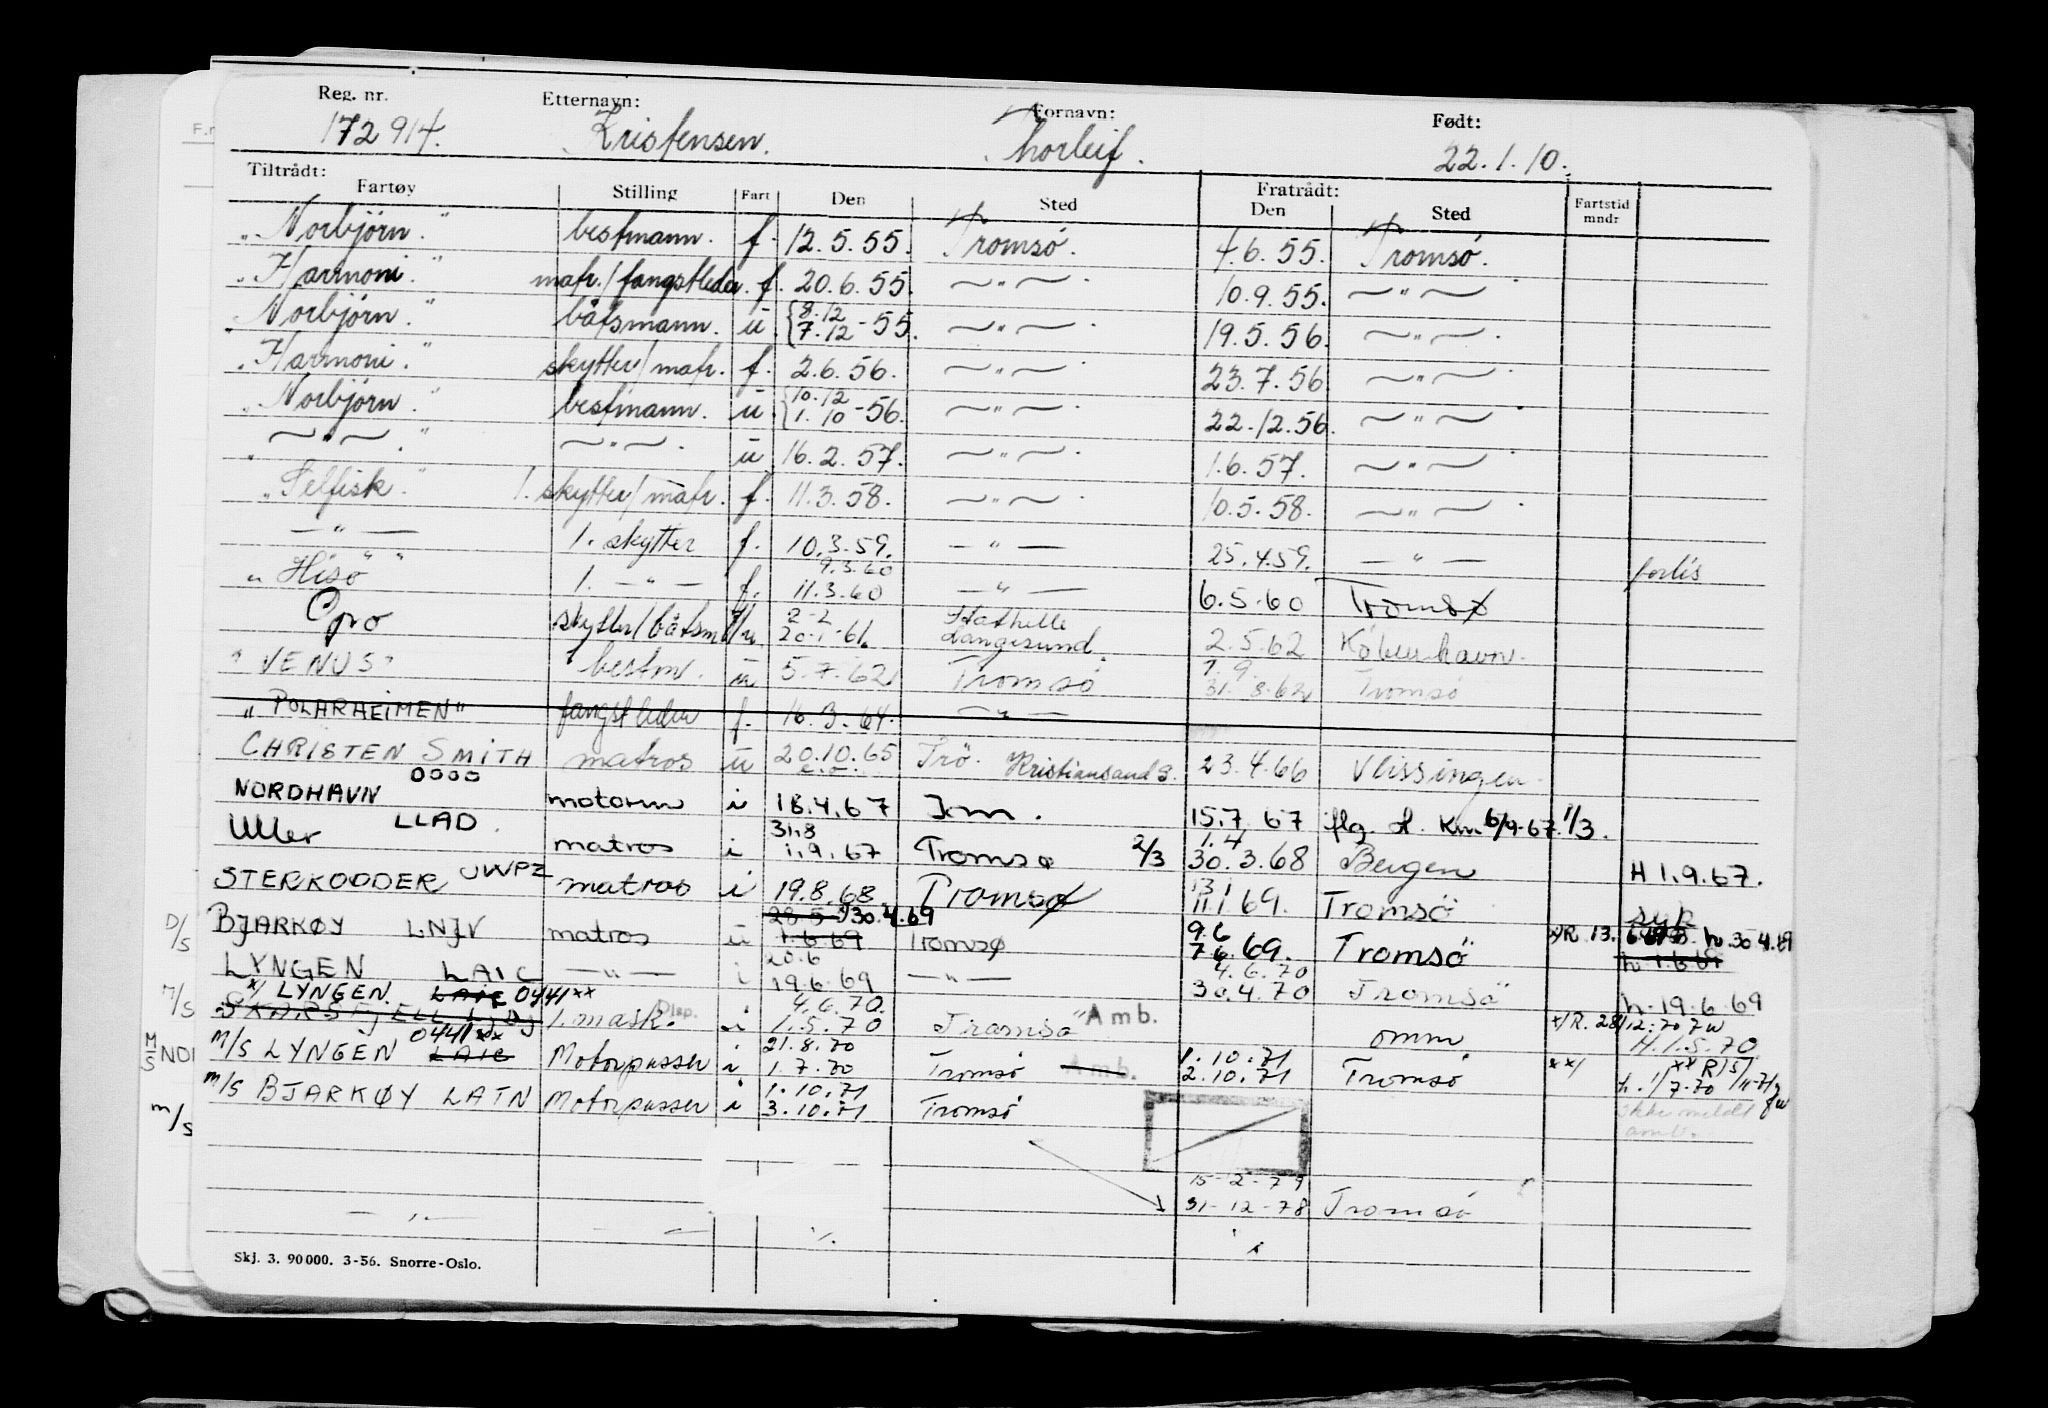 Reg. nr. Etternavn: Fornavn: Født:
172914. Kristensen. Thorleif. 22.1.10.
Tiltrådt: Fratrådt:
Fartøy Stilling Fart Den Sted Den Sted Fartstid mndr
"Norbjörn." bestmann. f. 12.5.55. Tromsö. 4.6.55. Tromsö.
"Harmoni." matr./fangstleder. f. 20.6.55. —"— 10.9.55. —"—
"Norbjörn." båtsmann. u. {8.12 7.12-55. —"— 19.5.56. —"—
"Harmoni." skytter/matr. f. 2.6.56. —"— 23.7.56. —"—
"Norbjörn." bestmann. u. {10.12 1.10-56. —"— 22.12.56. —"—
—"— —"— u 16.2.57. —"— 1.6.57. —"—
"Selfisk." 1. skytter/matr. f. 11.3.58. —"— 10.5.58. —"—
—"— 1. skytter f. 10.3.59. —"— 25.4.59. —"— forlis
9.3.60
"Hisö" 1. —"— f. 11.3.60 —"— 6.5.60 Tromsø
2-2 Stathelle
skytter/båtsm f/u 20-1-61 Langesund. 2.5.62 København.
7.9.
"VENUS" bestm. u 5.7.62 Tromsö 31.8.62 Tromsö
"POLARHEIMEN" fangstleder f. 16.3.64. —"—
CHRISTEN SMITH matros u 20.10.65 Trö. Kristiansand S. 23.4.66 Vlissingen.
OOOO
NORDHAVN motorm i 18.4.67 Krn. 15.7.67 flg. Krn. 6/9.67. 1/3.
LLAD. 31.8 1.4
Uller matros i 1.9.67 Tromsø 2/3 30.3.68 Bergen H 1.9.67.
JWPZ 13.1
STERKODDER matros i 19.8.68 Tromsø 11.1 69. Tromsö syk
28.5 30.4.69 9.6
BJARKØY LNJV matros u 1.6.69 Tromsø 7.6.69. Tromsö x/R. 13. h 30.4.69
20.6 4.6.70 h. 1.6.69
LYNGEN LAIC —"— i 19.6.69 —"— 30.4.70 Tromsö h. 19.6.69
x/ LYNGEN. LAIC 0441xx 4.6.70.
SKARSFJELL LJDJ 1. mask. Disp. i 1.5.70 Tromsö Amb. omm x/R. 28/12-70 H. 1.5.70
0441xx 21.8.70 1.10.71 xx R 15/11-71
M/S LYNGEN LAIC Motorpasser i 1.7.70 Tromsö Amb. 2.10.71 Tromsö xx/ h. 1/7.70
1.10.71
M/S BJARKØY LATN Motorpasser i 3.10.71 Tromsö ikke meldt
amb.
15-2-79
31-12-78 Tromsö
Skj. 3. 90000. 3-56. Snorre-Oslo.
F.
D/S
M/S
M/S NOI
M/S